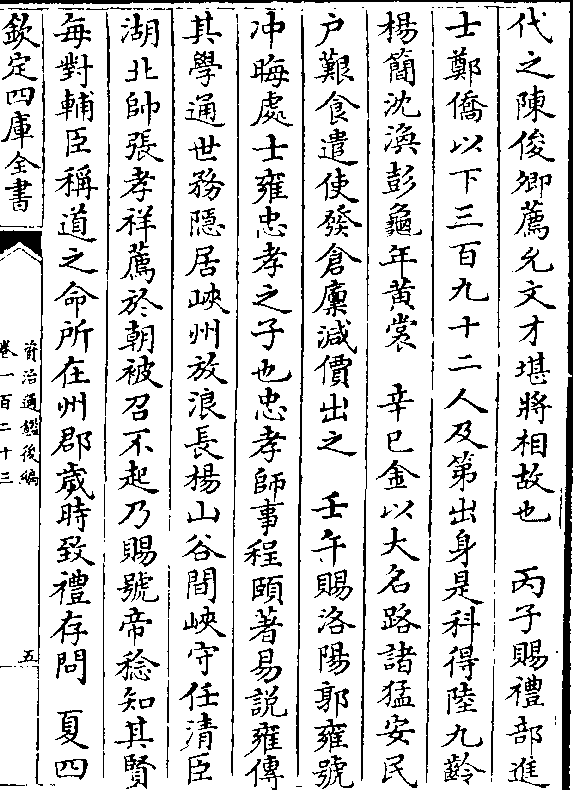 代之陳俊卿薦允文才堪將相故也　丙子賜禮部進
士鄭僑以下三百九十二人及第出身是科得陸九齡
楊簡沈渙彭龜年黄裳　辛巳金以大名路諸猛安民
户艱食遣使發倉廩減價出之　壬午賜洛陽郭雍號
冲晦處士雍忠孝之子也忠孝師事程頤著易説雍傳
其學通世務隱居峽州放浪長楊山谷間峽守任清臣
湖北帥張孝祥薦於朝被召不起乃賜號帝稔知其賢
每對輔臣稱道之命所在州郡歲時致禮存問　夏四
欽定四庫全書
資治通鑑後編
卷一百二十三
五